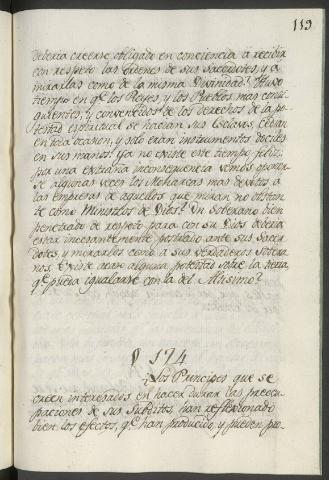 113
deberia creerse obligado en conciencia à recibir
con respeto las órdenes de sus Sacerdotes, y a
mirarlas como de la misma Divinidad? Hubo
tiempo en qe. los Reyes, y los Pueblos mas consi-
guientes, y convencidos de los derechos de la po-
testad espiritual se hacian sus Esclavos, cedian
en toda ocasion, y solo eran instrumentos dociles
en sus manos: Ya no existe este tiempo feliz:
por una extraña inconsequencia vemos oponer-
se algunas veces los Monarcas mas devotos à
las empresas de aquellos que miran no obstan-
te como Ministros de Dios. Un Soberano bien
penetrado de respeto para con su Dios deberia
estar incesantemente postrado ante sus Sacer-
dotes, y mirarlos como à sus verdaderos Sobera-
nos. Existe acaso alguna potestad sobre la tierra
qe. pueda igualarse con la del Altisimo?
§ 174
¿Los Principes que se
creen interesados en hacer durar las preocu-
paciones de sus Subditos, han reflexionado
bien los efectos, qe. han producido, y pueden pro-